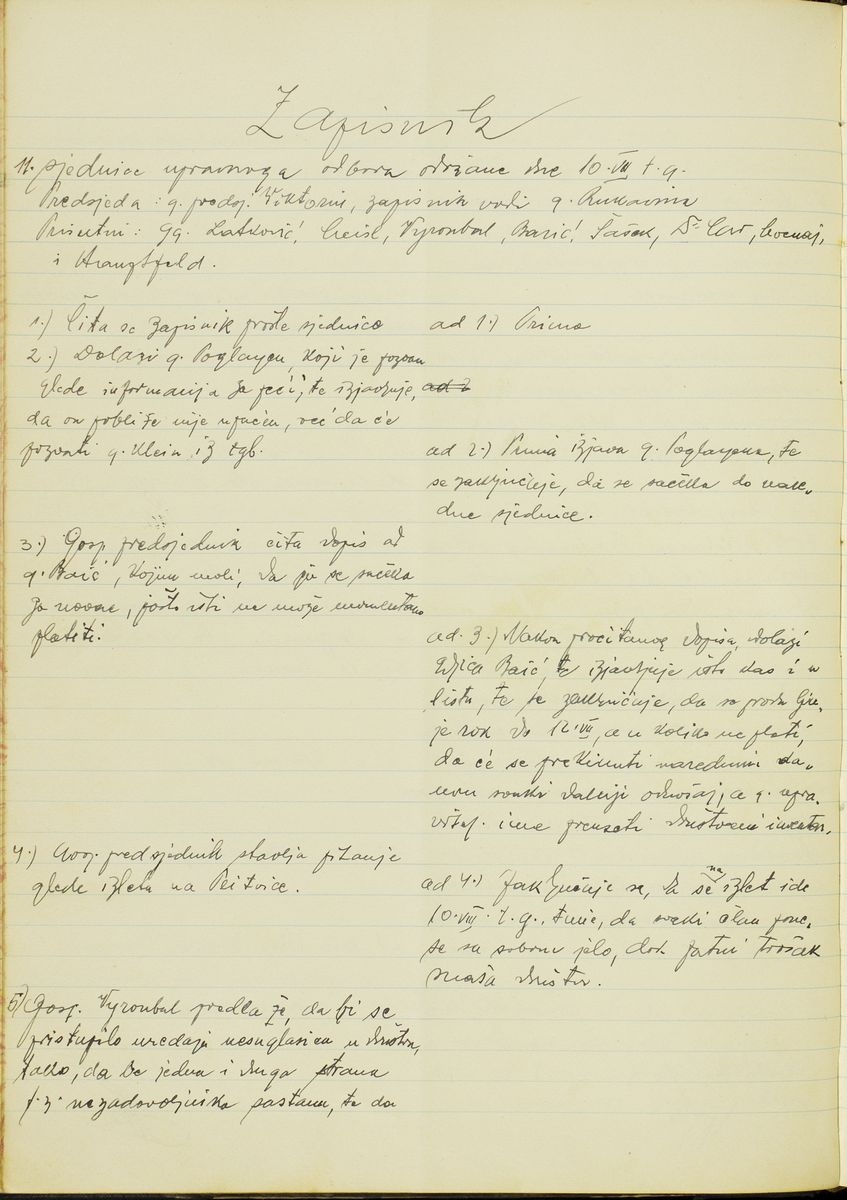 Zapisnik
11. sjednice upravnoga odbora održane dne 10.VIII t.g.
Predsjeda: g. predsj. Viktorin, zapisnik vodi g. Rukavina
Prisutni: gg. Latković, Vyroubal, Barić, Šašek, Dr
i
1.) Čita se zapisnik prošle sjednice
2.) Dolazi g. Poglayen, koji je pozvan
glede informacija za peći, te izjavljuje, ad 2
da on pobliže nije upućen, već da će
pozvati g. Klein iz tgb.
3.) Gosp. predsjednik čita dopis od
g. Baić, kojim moli, da ju se sačeka
za novac, pošto isti ne može momentano
platiti.
4.) Gosp. predsjednik stavlja pitanje
glede izleta na Plitvice.
5.) Gosp. Vyroubal predlaže, da bi se
pristupilo uređaju nesuglasica u društvu,
tako, da se jedna i druga strana
t.j. nezadovoljnika sastanu, te da
ad 1.) Prima
ad 2.) Prima izjava g. Poglayena, te
se zaključuje, da se sačeka do nare„
dne sjednice.
ad. 3.) Nakon pročitanog dopisa, dolazi
gdjica Baić, te izjavljuje isto kao i u
listu, te se zaključuje, da se
je rok do 12.VIII, a u koliko ne plati,
da će se prekinuti narednim da„
nom svaki daljnji odnošaj, a g. upra„
preuzeti društveni inventar.
ad 4.) Zaključuje se, da se na izlet ide
10.VIII.t.g., time, da svaki član pone„
se sa sobom jelo, dok putni trošak
snaša društvo.